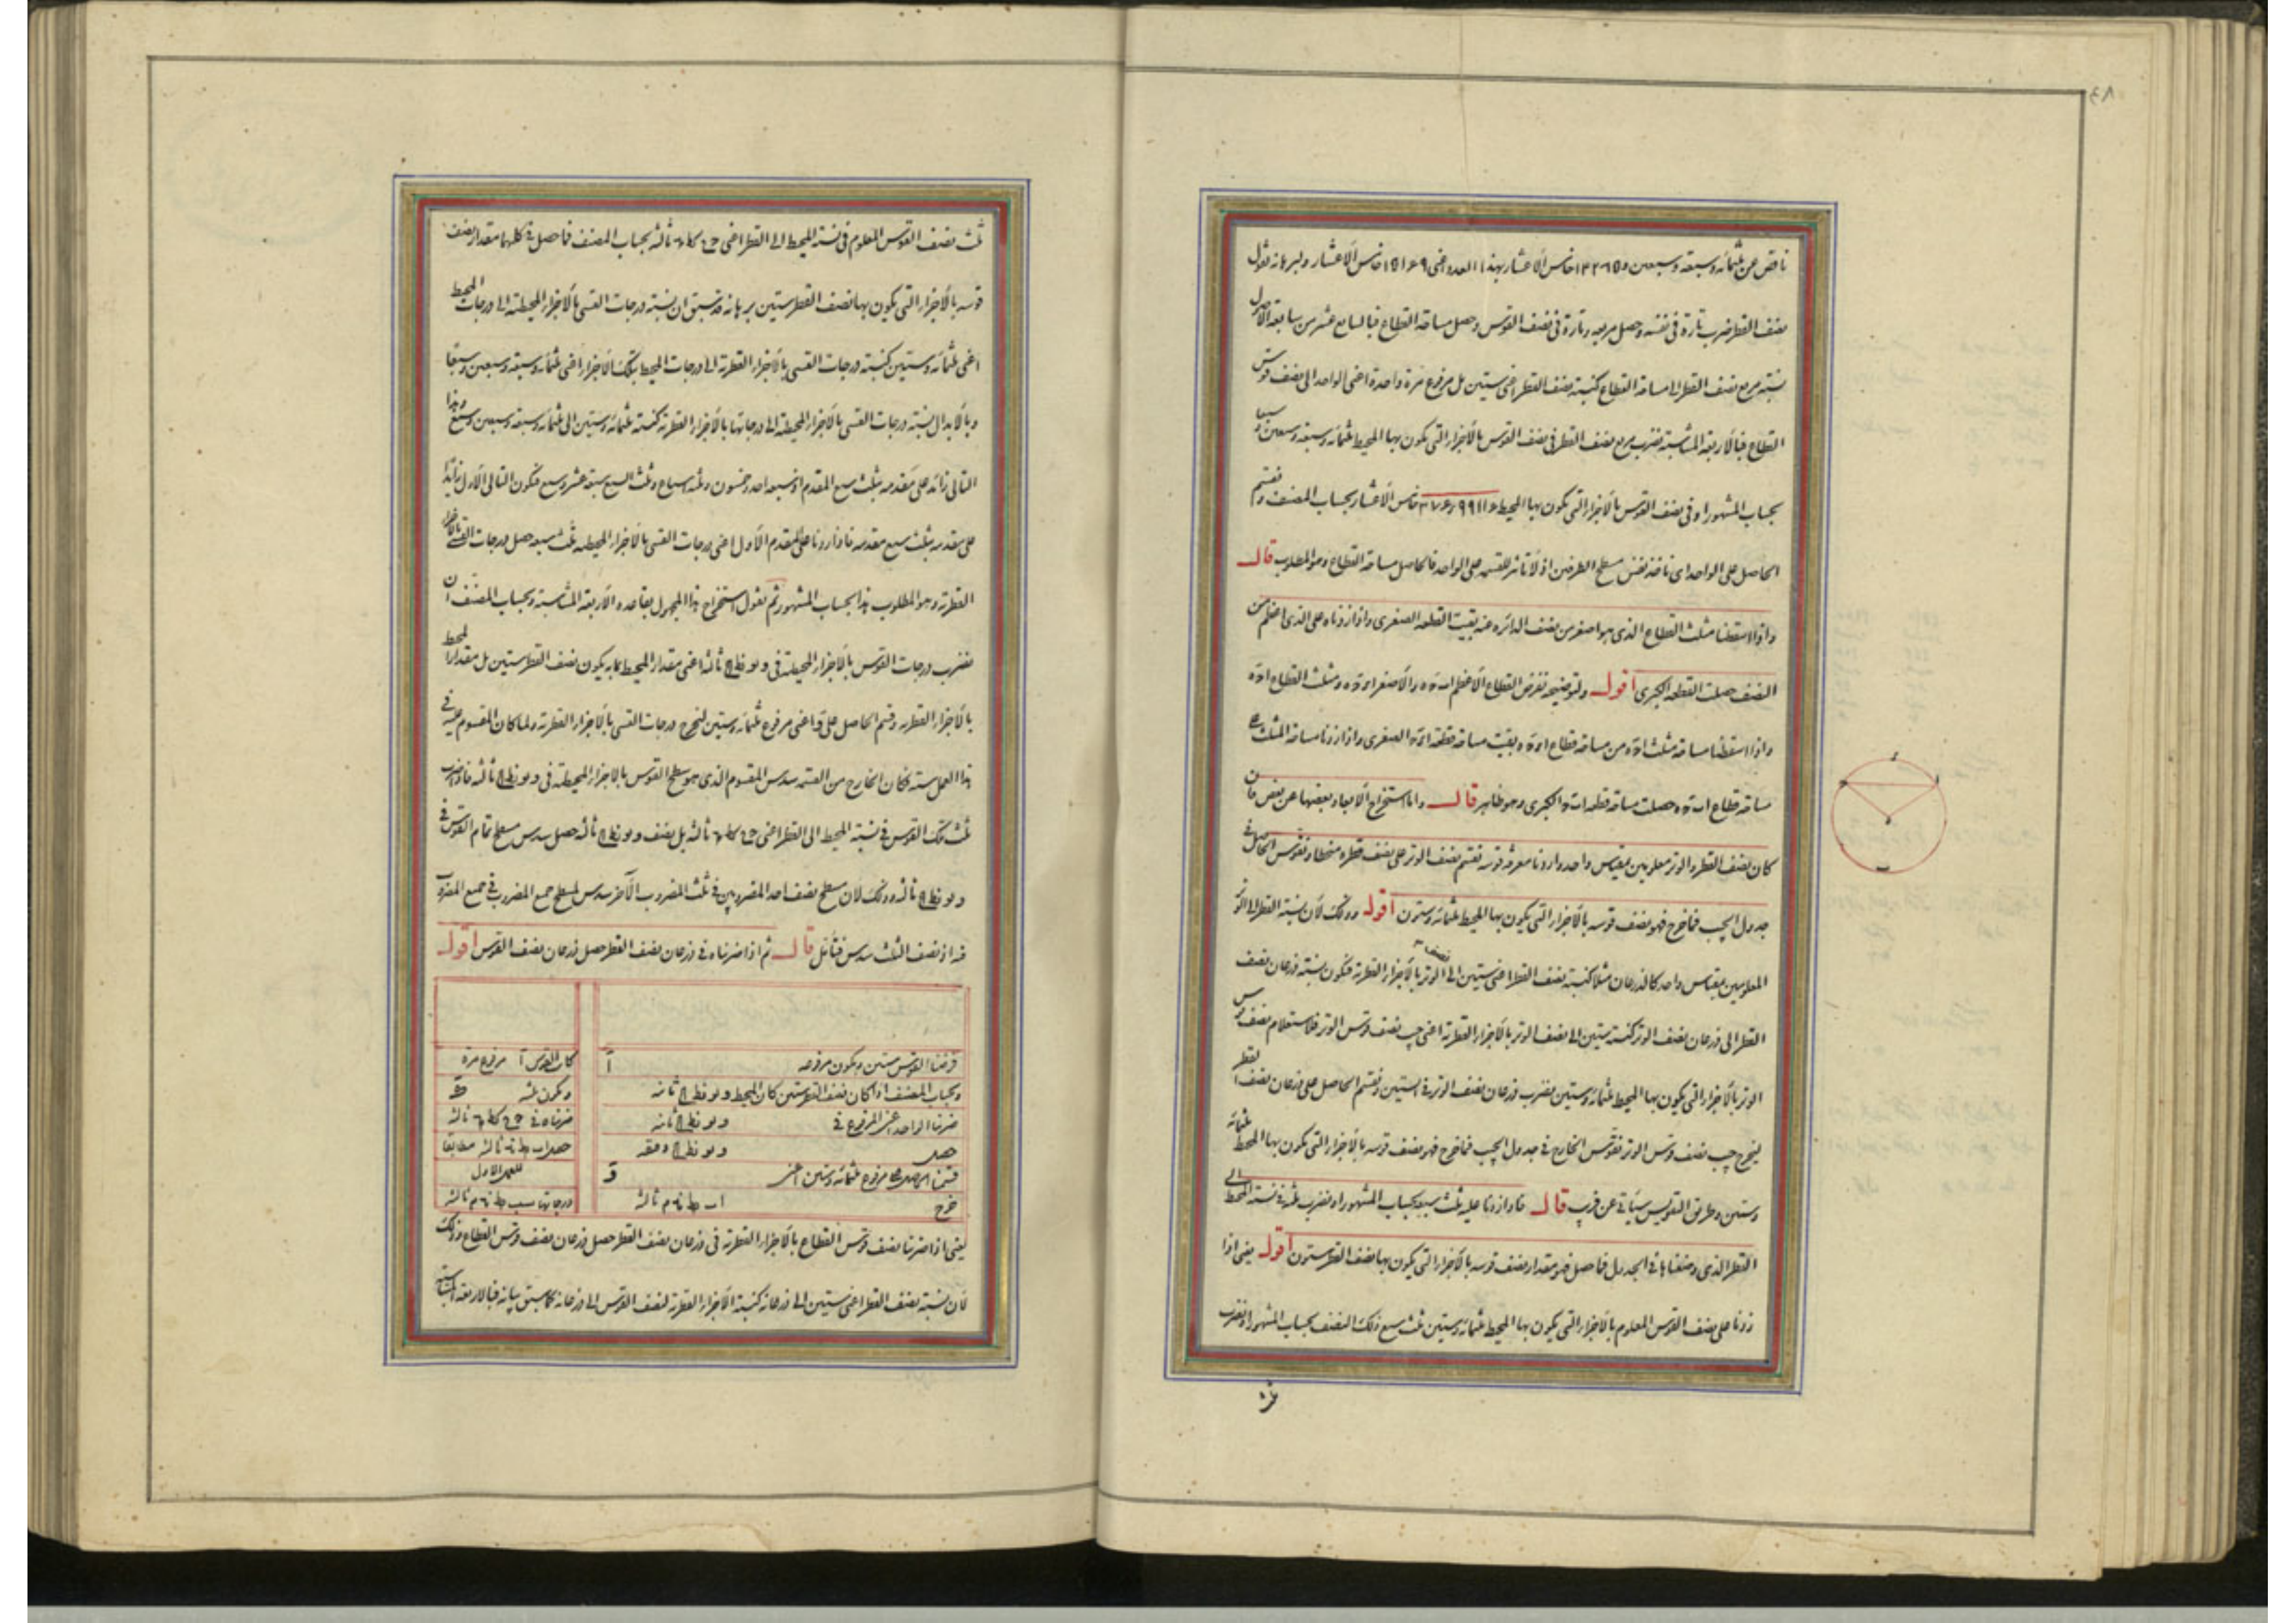 ناقص عن ثلثمائه وسبعة وسبعين و خامس الاعشار بهذا العدد اعنى خامس الاعشار ولبرهانه نقول
نصف القطر ضرب تارة فى نفسه وحصل مربعه وتارة فى نصف القوس وحصل مساحة القطاع فبالسابع عشر من سابعة الاصول
نسبة مربع نصف القطر الى مساحة القطاع كنسبة نصف القطر اعنى ستين بل مرفوع مرة واحدة اعنى الواحد الى نصف قوس
القطاع فبالاربعة المتناسبة نضرب مربع نصف القطر فى نصف القوس بالاجزاء التى يكون بها المحيط ثلثمائه وسبعة وسبعين وسبعا
بحساب المشهور او فى نصف القوس بالاجزاء التى يكون بها المحيط خامس الاعشار بحساب المصنف ونقسم
الحاصل على الواحد اى ناخذ نفس مسطح الطرفين اذ لا تاثر للقسمة على الواحد فالحاصل مساحة القطاع وهو المطلوب قال
واذا اسقطنا مثلث القطاع الذى هو اصغر من نصف الدائره عنه بقيت القطعة الصغرى واذا زدناه على الذى اعظم من
النصف حصلت القطعة الكبرى اقول ولتوضيحه نفرض القطاع الاعظم والاصغر ومثلث القطاع
واذا اسقطنا مساحة مثلث من مساحة قطاع بقيت مساحة قطعة الصغرى واذا زدنا مساحة المثلث على
مساحة قطاع حصلت مساحة قطعة الكبرى وهو ظاهر قال واما استخراج الابعاد بعضها عن بعض فان
كان نصف القطر والوتر معلومين بمقياس واحد واردنا معرفة قوسه نقسم نصف الوتر على نصف قطره منحطا ونقوس الحاصل فى
جدول الجيب فما خرج فهو نصف قوسه بالاجزاء التى يكون بها المحيط ثلثمائه وستون اقول وذلك لان نسبة القطر الى الوتر
المعلومين بمقياس واحد كالذرعان مثلا كنسبة نصف القطر اعنى ستين الى الوتر بالاجزاء القطرية فتكون نسبة ذرعان نصف
القطر الى ذرعان نصف الوتر كنسبة ستين الى نصف الوتر بالاجزاء القطرية اعنى جيب نصف قوس الوتر فلاستعلام نصف قوس
الوتر بالاجزاء التى يكون بها المحيط ثلثمائه وستين نضرب ذرعان نصف الوتر فى الستين ونقسم الحاصل على ذرعان نصف القطر
ليخرج جيب نصف قوس الوتر فنقوس الخارج فى جدول الجيب فما خرج فهو نصف قوسه بالاجزاء التى يكون بها المحيط ثلثمائه
وستين وطريق التقويس سياتى عن قريب قال فاذا زدنا عليه ثلث سبعه بحساب المشهور او نضرب ثلثه فى نسبة المحيط الى
القطر الذى وضعناها فى الجدول فما حصل فهو مقدار نصف قوسه بالاجزاء التى يكون بها نصف القطر ستون اقول يعنى اذا
زدنا على نصف القوس المعلوم بالاجزاء التى يكون بها المحيط ثلثمائه وستين ثلث سبع ذلك النصف بحساب المشهور او نضرب
ثلث
ثلث نصف القوس المعلوم فى نسبة المحيط الى القطر اعنى ثالثه بحساب المصنف فما حصل فى كليهما مقدار نصف
قوسه بالاجزاء التى يكون بها نصف القطر ستين برهانه قد سبق ان نسبة درجات القسى بالاجزاء المحيطية الى درجات المحيط
اعنى ثلثمائه وستين كنسبة درجات القسى بالاجزاء القطرية الى درجات المحيط بتلك الاجزاء اعنى ثلثمائه وسبعة وسبعين وسبعا
وبالابدال نسبة درجات القسى بالاجزاء المحيطية الى درجاتها بالاجزاء القطرية كنسبة ثلثمائه وستين الى ثلثمائه وسبعة وسبعين وسبع وهذا
التالى زائد على مقدمه بثلث سبع المقدم اذ سبعه احد وخمسون وثلثة اسباع وثلث السبع سبعة عشر وسبع فتكون التالى الاول زائدا
على مقدمه بثلث سبع مقدمه فاذا زدنا على المقدم الاول اعنى درجات القسى بالاجزاء المحيطية ثلث سبعه حصل درجات القسى بالاجزاء
القطرية وهو المطلوب هذا بحساب المشهور ثم نقول استخراج هذا المجهول بقاعده الاربعة المتناسبة وبحساب المصنف ان
نضرب درجات القوس بالاجزاء المحيطية فى ثالثه اعنى مقدار المحيط بما به يكون نصف القطر ستين بل مقدار المحيط
بالاجزاء القطرية ونقسم الحاصل على و اعنى مرفوع ثلثمائه وستين ليخرج درجات القسى بالاجزاء القطرية ولما كان المقسوم عليه فى
هذا العمل ستة فكان الخارج من القسمة سدس المقسوم الذى هو مسطح القوس بالاجزاء المحيطية فى ثالثه فاذا ضرب
ثلث تلك القوس فى نسبة المحيط الى القطر اعنى ثالثه بل نصف ثالثه حصل سدس مسطح تمام القوس فى
ثالثه وذلك لان مسطح نصف احد المضروبين فى ثلث المضروب الآخر سدس لمسطح جميع المضروب فى جميع المضروب
فيه اذ نصف الثلث سدس فتامل قال ثم اذا ضربناه فى ذرعان نصف القطر حصل ذرعان نصف القوس اقول
فرضنا القوس ستين ويكون مرفوعه ا
كان القوس ا مرفوع مرة
وبحساب المصنف اذا كان نصف القطر ستين كان المحيط ثانيه
ويكون ثلثه
ضربنا الواحد اعنى المرفوع فى ثانيه
ضربناه فى ثالثه
حصل
حصل ثالثه مطابقا
قسمنا الحاصل على مرفوع ثلثمائه وستين اعنى و
للعمل الاول
خرج ثالثه
درجاتها ثالثه
يعنى اذا ضربنا نصف قوس القطاع بالاجزاء القطرية فى ذرعان نصف القطر حصل ذرعان نصف قوس القطاع وذلك
لان نسبة نصف القطر اعنى ستين الى ذرعانه كنسبة الاجزاء القطرية لنصف القوس الى ذرعانه كما سبق بيانه فبالاربعة المتناسبة